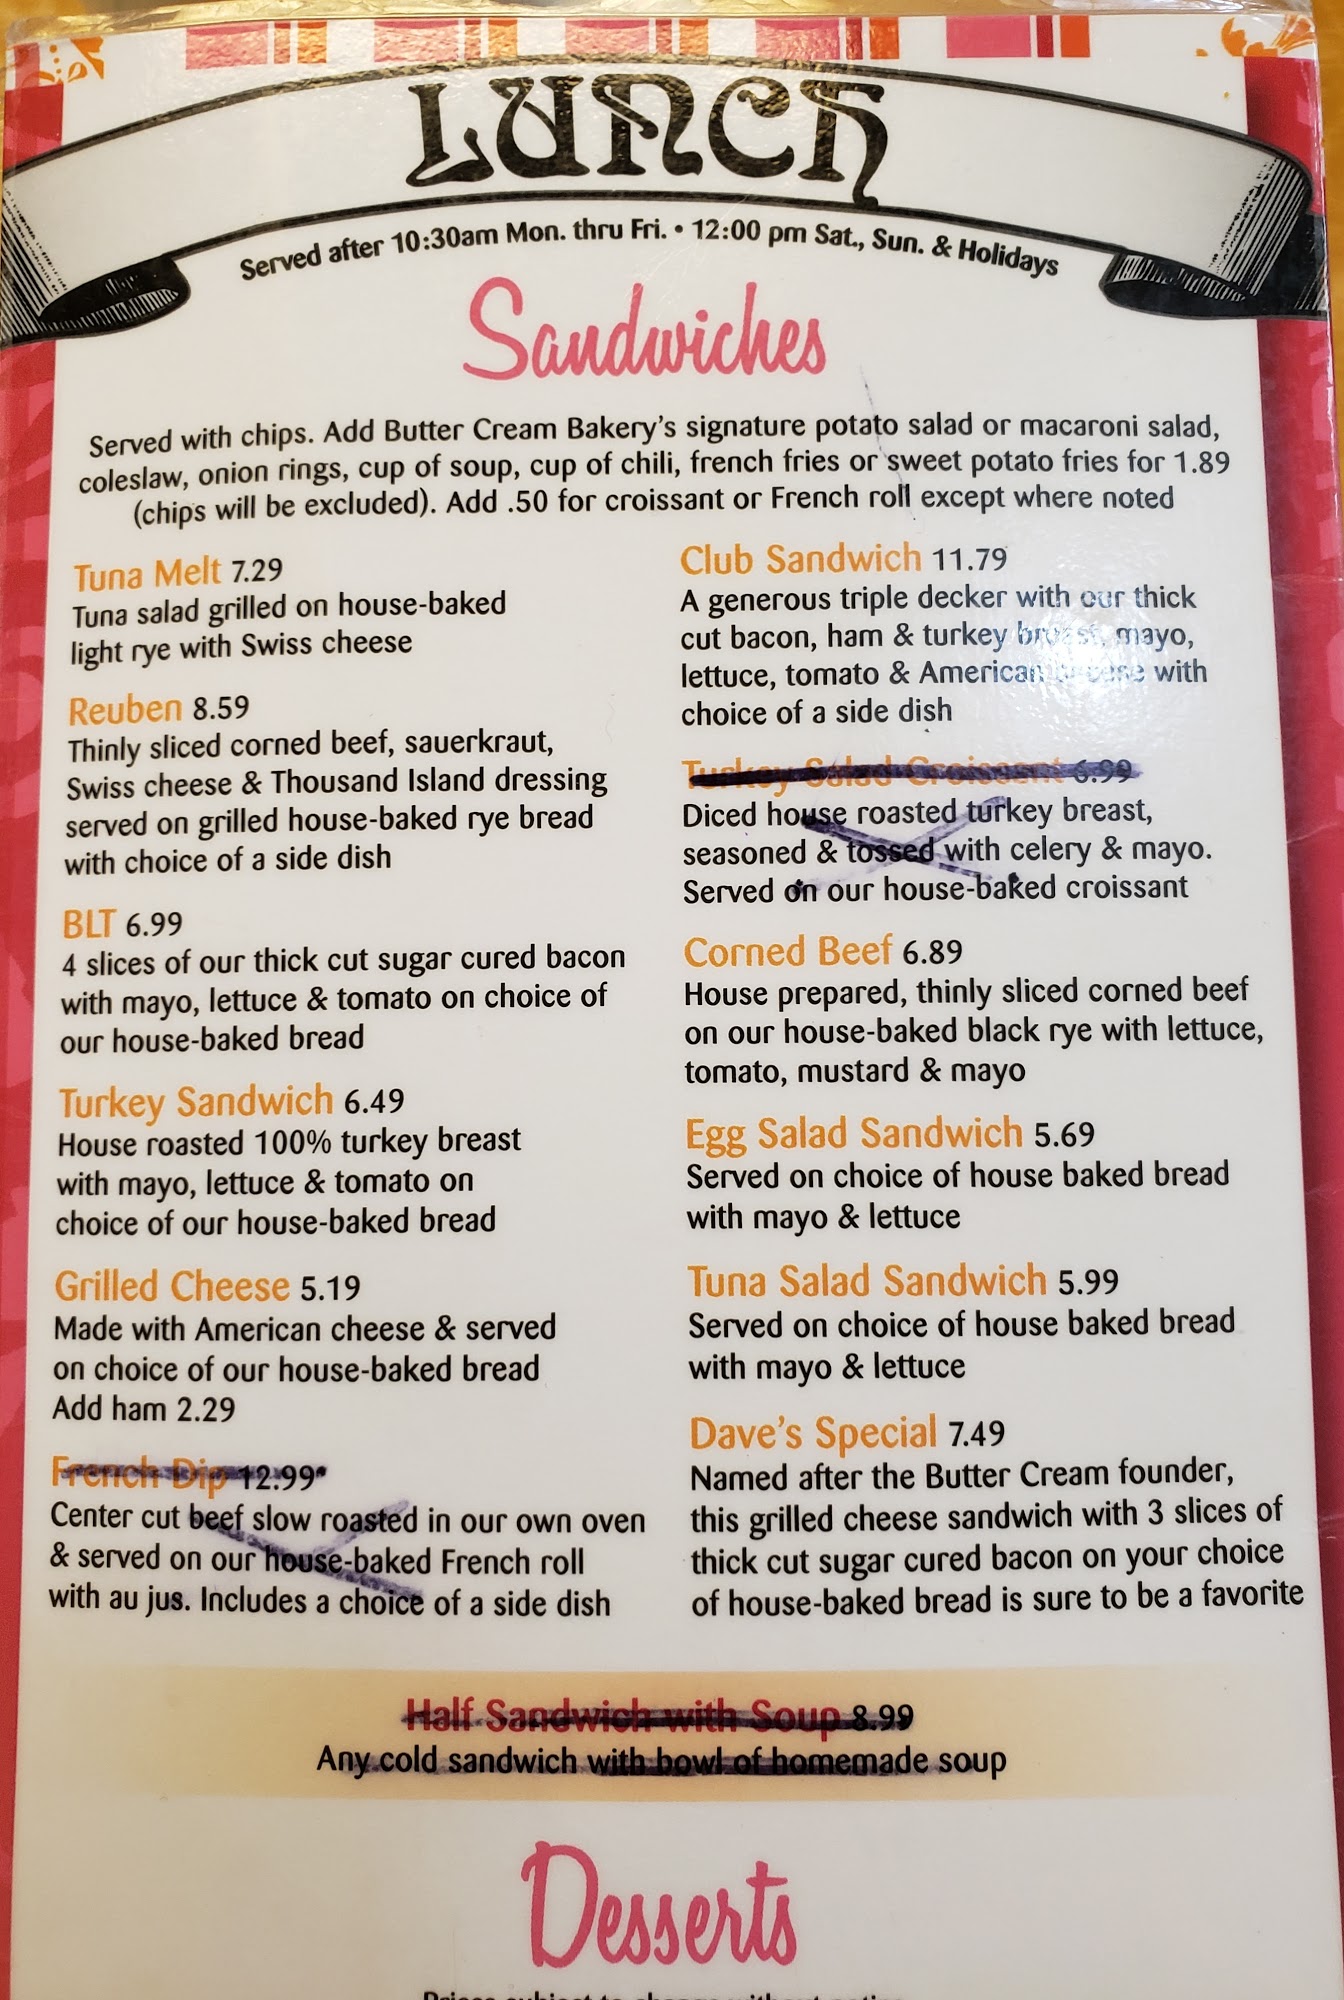 LUNCH
Served after 10:30am Mon. thru Fri. • 12:00 pm Sat., Sun. & Holidays
Sandwiches
Served with chips. Add Butter Cream Bakery's signature potato salad or macaroni salad,
coleslaw, onion rings, cup of soup, cup of chili, french fries or sweet potato fries for 1.89
(chips will be excluded). Add .50 for croissant or French roll except where noted
Tuna Melt 7.29
Tuna salad grilled on house-baked
light rye with Swiss cheese
Reuben 8.59
Thinly sliced corned beef, sauerkraut,
Swiss cheese & Thousand Island dressing
served on grilled house-baked rye bread
with choice of a side dish
BLT 6.99
4 slices of our thick cut sugar cured bacon
with mayo, lettuce & tomato on choice of
our house-baked bread
Turkey Sandwich 6.49
House roasted 100% turkey breast
with mayo, lettuce & tomato on
choice of our house-baked bread
Grilled Cheese 5.19
Made with American cheese & served
on choice of our house-baked bread
Add ham 2.29
French Dip 12.99*
Center cut beef slow roasted in our own oven
& served on our house-baked French roll
with au jus. Includes a choice of a side dish
Club Sandwich 11.79
A generous triple decker with our thick
cut bacon, ham & turkey breast, mayo,
lettuce, tomato & American cheese with
choice of a side dish
Turkey Salad Croissant 6.99
Diced house roasted turkey breast,
seasoned & tossed with celery & mayo.
Served on our house-baked croissant
Corned Beef 6.89
House prepared, thinly sliced corned beef
on our house-baked black rye with lettuce,
tomato, mustard & mayo
Egg Salad Sandwich 5.69
Served on choice of house baked bread
with mayo & lettuce
Tuna Salad Sandwich 5.99
Served on choice of house baked bread
with mayo & lettuce
Dave's Special 7.49
Named after the Butter Cream founder,
this grilled cheese sandwich with 3 slices of
thick cut sugar cured bacon on your choice
of house-baked bread is sure to be a favorite
Half Sandwich with Soup 8.99
Any cold sandwich with bowl of homemade soup
Desserts
Prices subject to change without notice